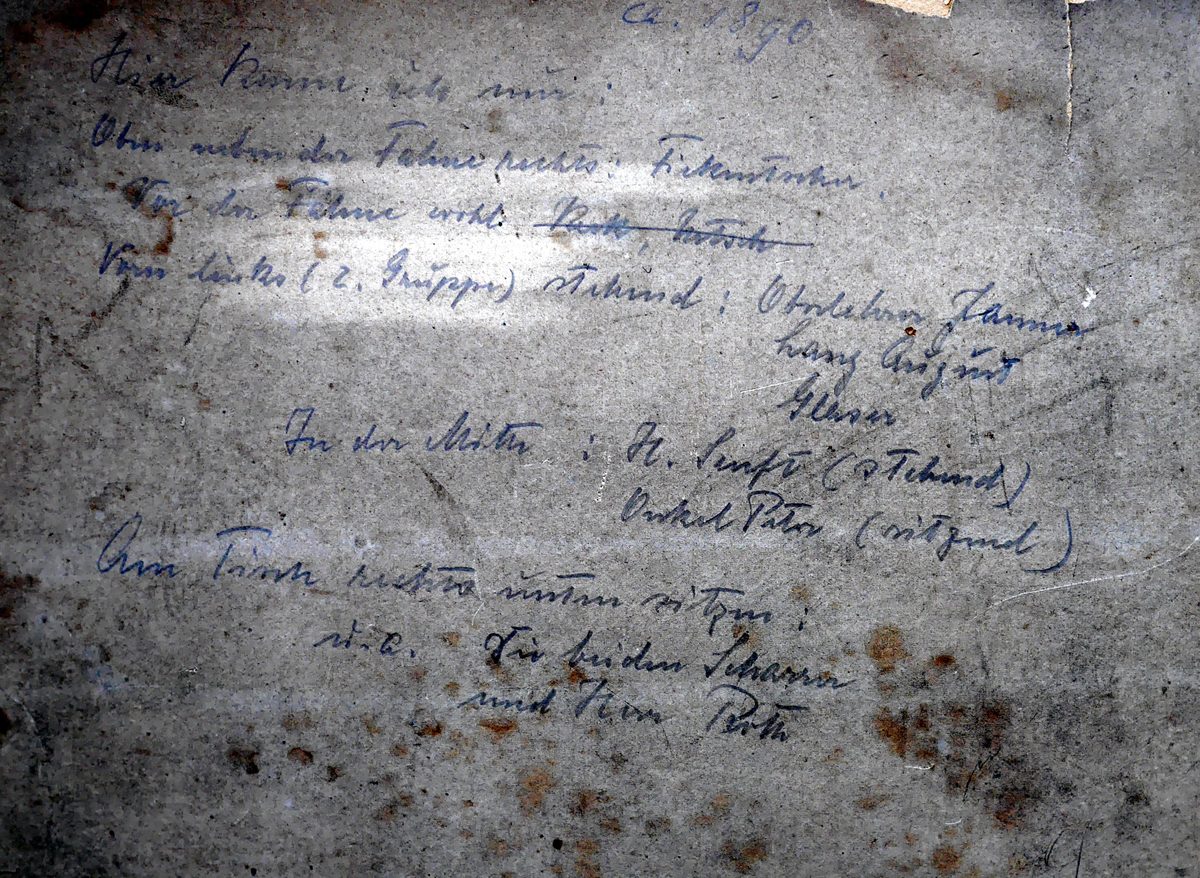 ca. 1890
Hier kenne ich nur:
Oben neben der Fahne rechts: Fickentscher.
Vor der Fahne wohl
Vorn links (2. Gruppe) stehend: Oberlehrer
Lang August
Glaser
In der Mitte : H. Senft (stehend)
Onkel Peter (sitzend)
Am Tisch rechts unten sitzen:
u.a. Die beiden Scharrer
und Herr Roth